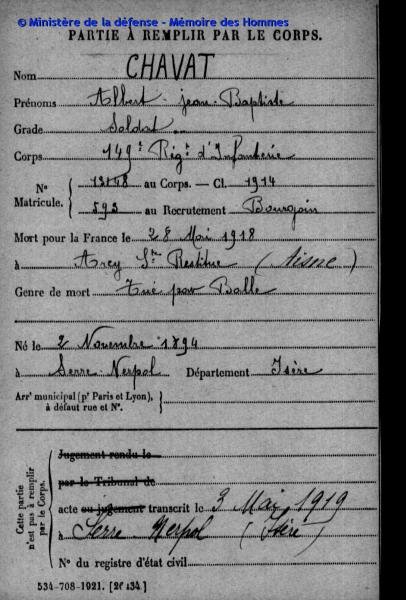 © Ministère de la défense - Mémoire des Hommes
PARTIE À REMPLIR PAR LE CORPS.
Nom CHAVAT
Prénoms Albert Jean-Baptiste
Grade Soldat
Corps 149e Régt d'Infanterie
N° Matricule. { 13148 au Corps. — Cl. 1914
593 au Recrutement Bourgoin
Mort pour la France le 28 Mai 1918
à Arcy Ste Restitue (Aisne)
Genre de mort Tué par Balle
Né le 2 Novembre 1894
à Serre-Nerpol Département Isère
Arrt municipal (pr Paris et Lyon), à défaut rue et N°. }
Cette partie n'est pas à remplir par le Corps.
Jugement rendu le
par le Tribunal de
acte ou jugement transcrit le 3 Mai 1919
à Serre-Nerpol (Isère)
N° du registre d'état civil
534-708-1921. [26434]